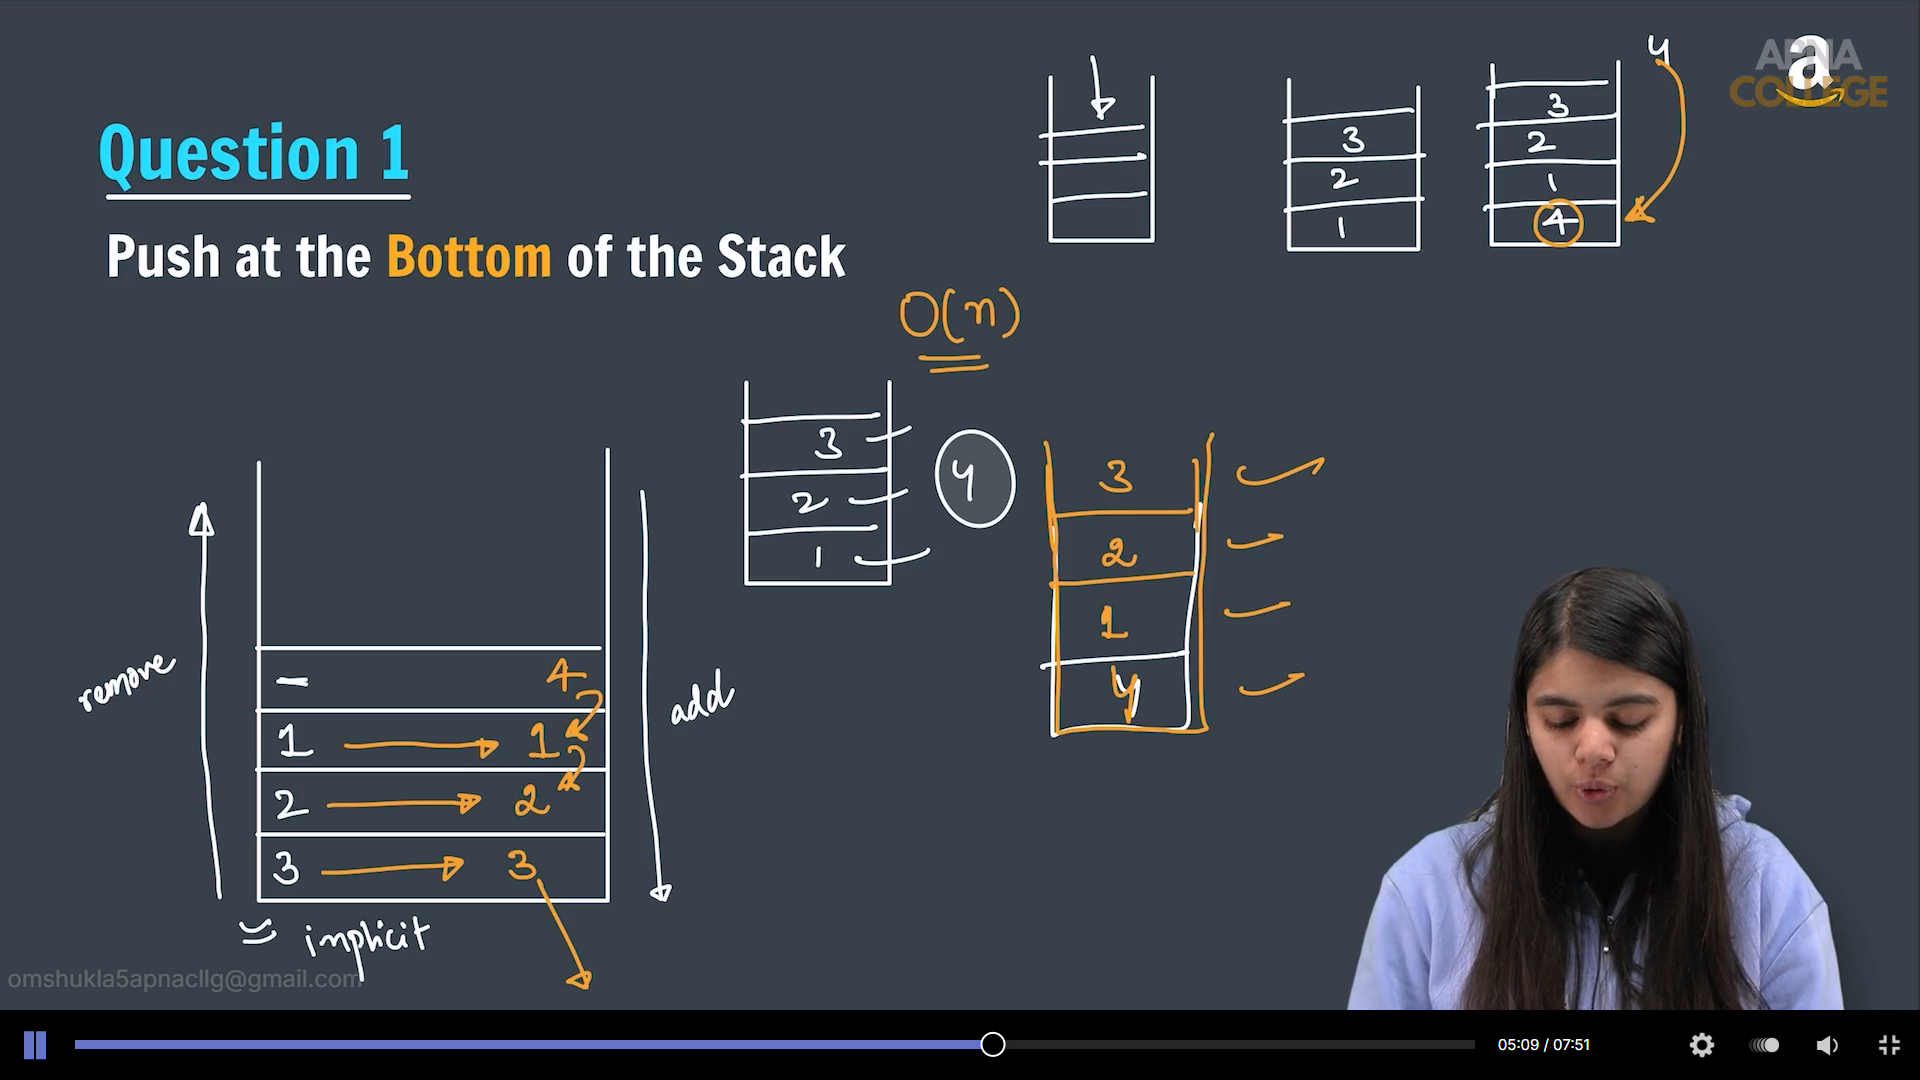 APNA
COLLEGE
a
Question 1
Push at the Bottom of the Stack
3
2
1
4
3
2
1
4
O(n)
3
2
1
4
3
2
1
4
remove
add
- 4
1 1
2 2
3 3
implicit
omshukla5apnacllg@gmail.com
05:09 / 07:51